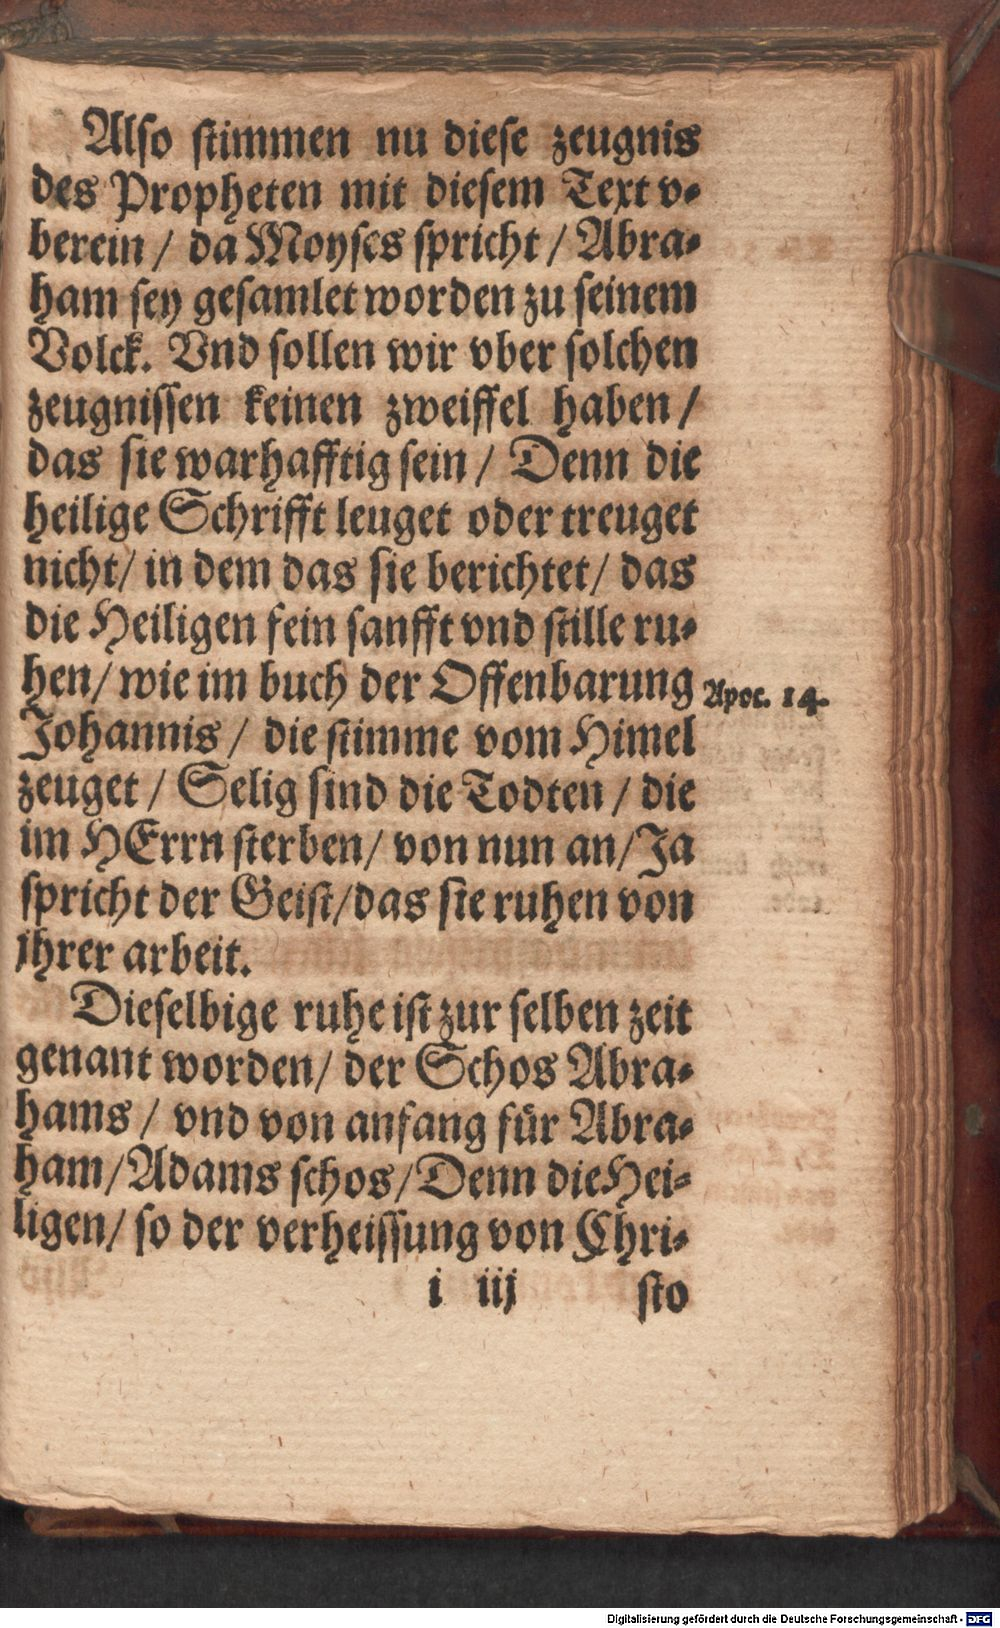 Also stimmen nu diese zeugnis
des Propheten mit diesem Text v-
berein / da Moyses spricht / Abra-
ham sey gesamlet worden zu seinem
Volck. Vnd sollen wir vber solchen
zeugnissen keinen zweiffel haben /
das sie warhafftig sein / Denn die
heilige Schrifft leuget oder treuget
nicht / in dem das sie berichtet / das
die Heiligen fein sanfft vnd stille ru-
hen / wie im buch der Offenbarung
Apoc. 14.
Johannis / die stimme vom Himel
zeuget / Selig sind die Todten / die
im HErrn sterben / von nun an / Ja
spricht der Geist / das sie ruhen von
jhrer arbeit.
Dieselbige ruhe ist zur selben zeit
genant worden / der Schos Abra-
hams / vnd von anfang für Abra-
ham / Adams schos / Denn die Hei-
ligen / so der verheissung von Chri-
i iij sto
Digitalisierung gefördert durch die Deutsche Forschungsgemeinschaft - DFG